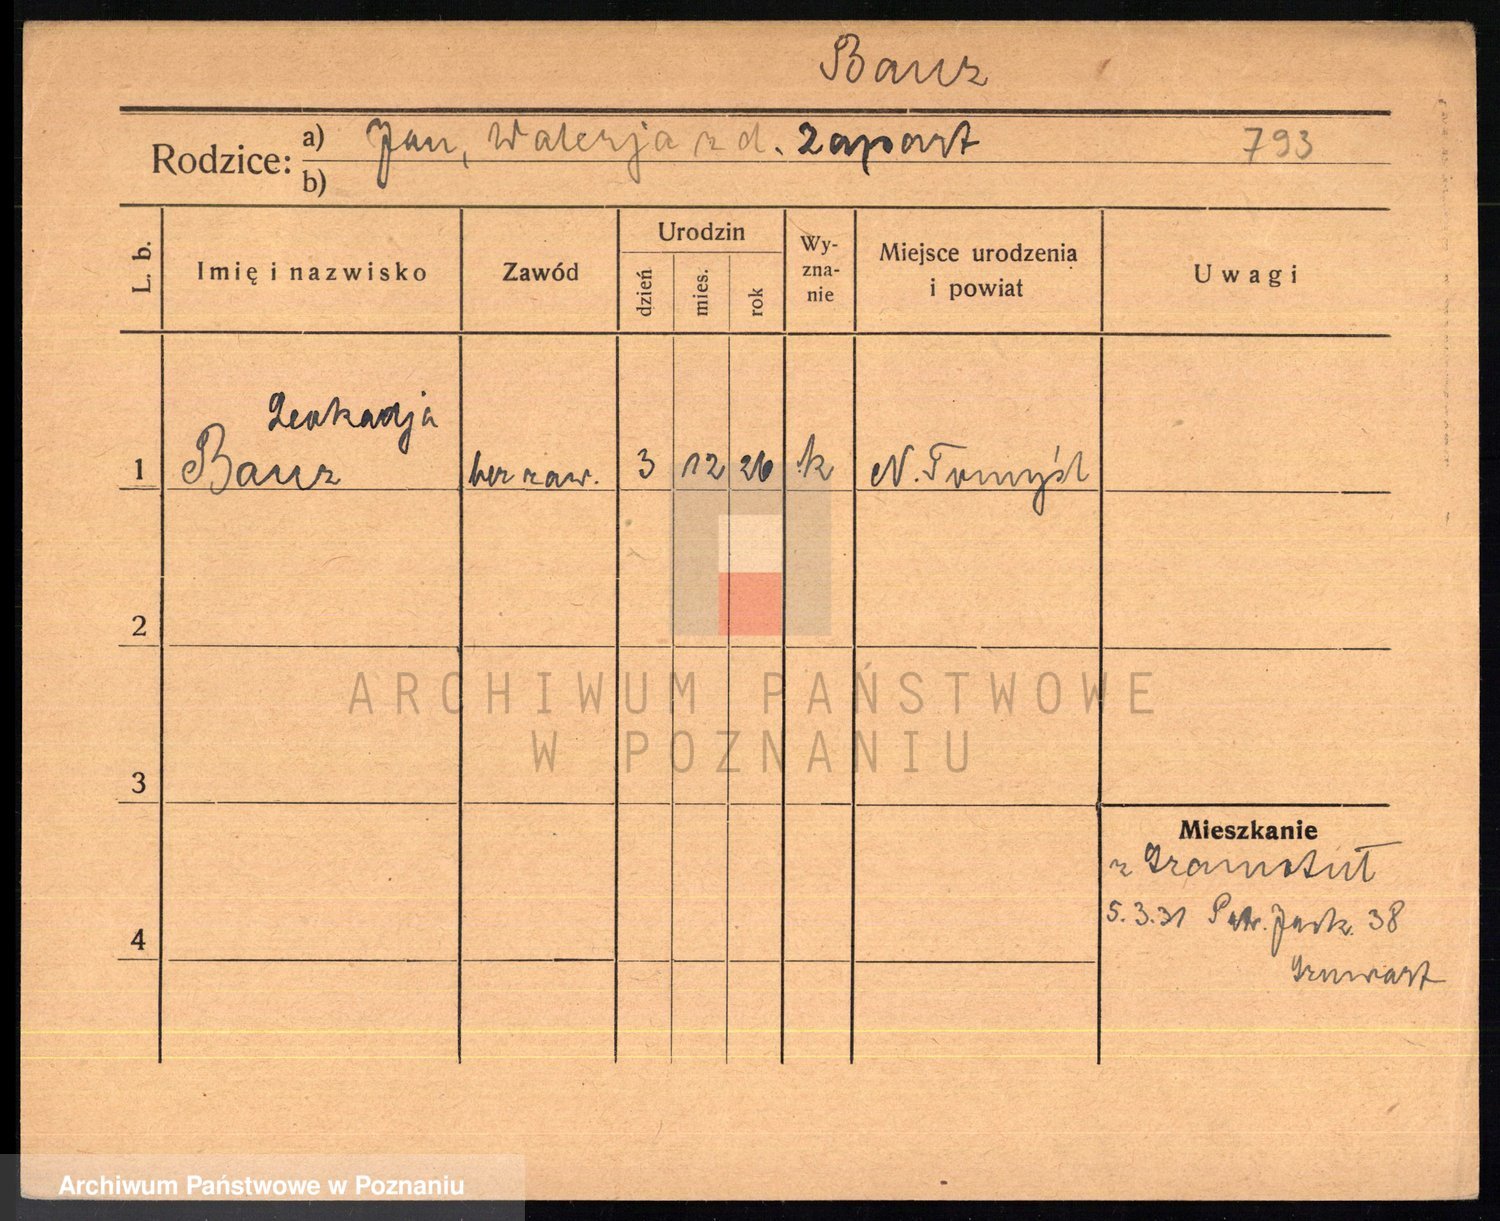 Banz
Rodzice: a) Jan, Walerja z d. Zapart 793
b)
L. b.
Imię i nazwisko
Zawód
Urodzin
dzień
mies.
rok
Wy-
zna-
nie
Miejsce urodzenia
i powiat
Uwagi
Leokadja
1 Banz bez zaw. 3 12 26 k N. Tomyśl
2
ARCHIWUM PAŃSTWOWE
W POZNANIU
3
Mieszkanie
z
5.3.31 38
4
Archiwum Państwowe w Poznaniu